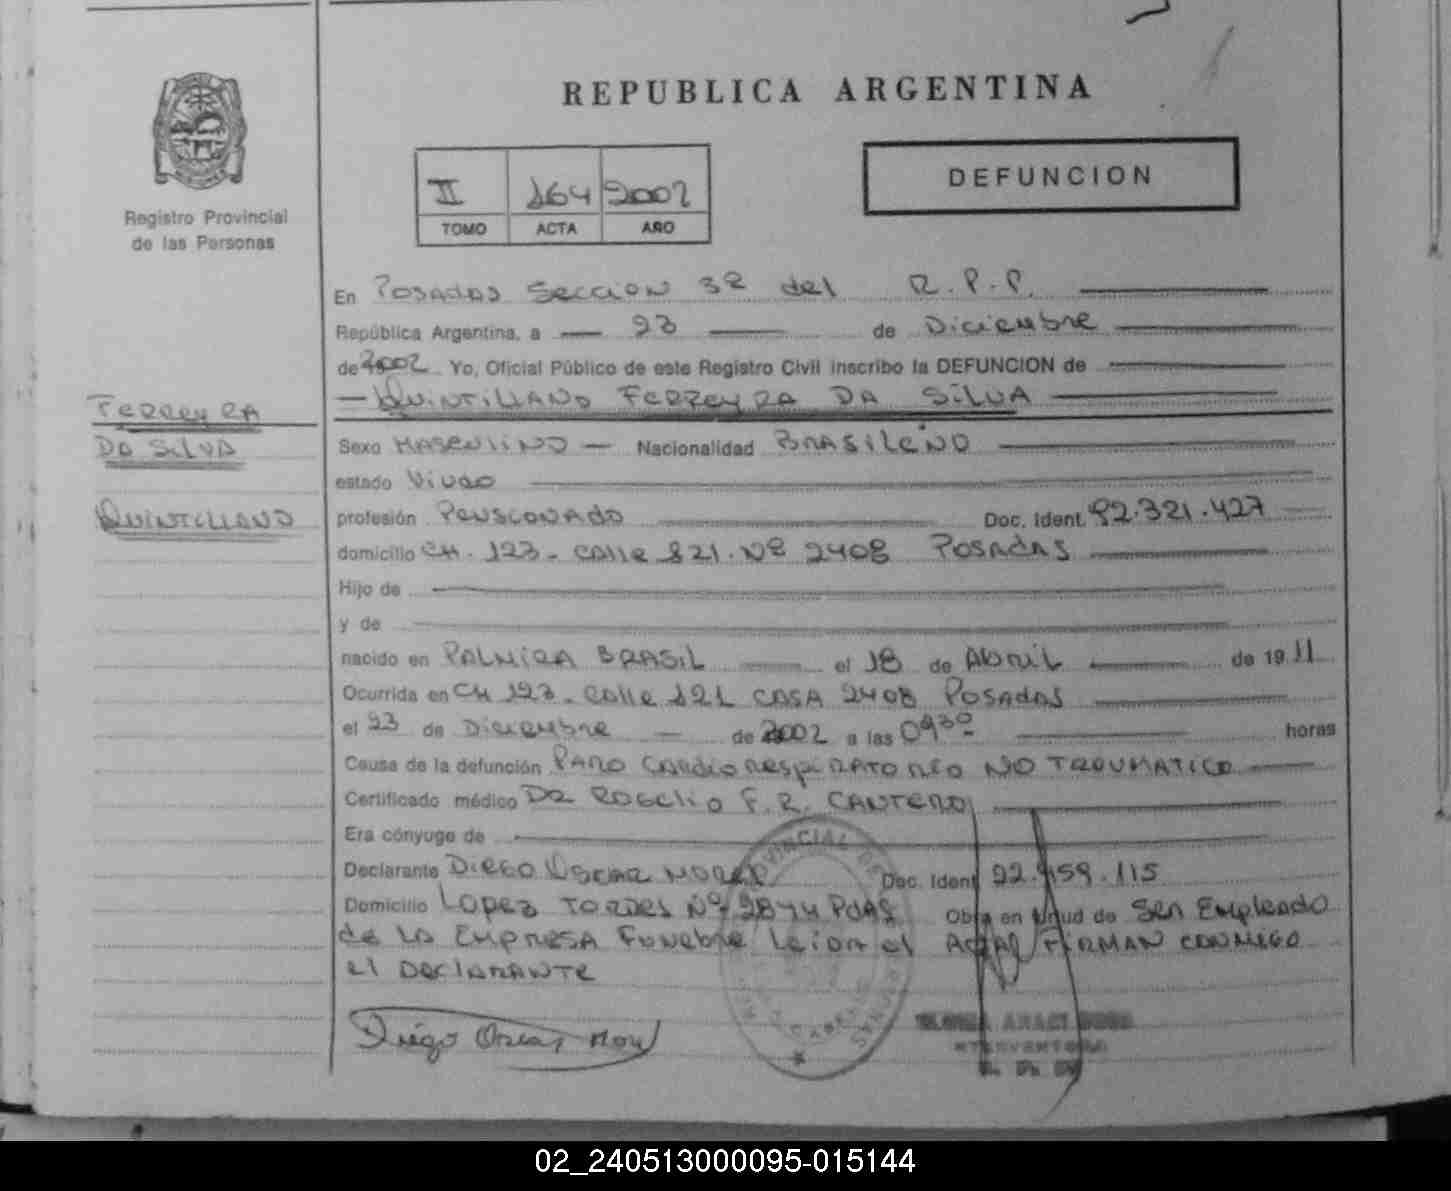 REPUBLICA ARGENTINA
Registro Provincial
de las Personas
II 164 2002
TOMO ACTA AÑO
DEFUNCION
En Posadas Seccion 3ª del R.P.P.
República Argentina, a 23 de Diciembre
de 2002 Yo, Oficial Público de este Registro Civil inscribo la DEFUNCION de
Quintiliano Ferreyra Da Silva
Ferreyra
Da Silva
Quintiliano
Sexo Masculino Nacionalidad Brasileño
estado Viudo
profesión Pensionado Doc. Ident. 92.321.427
domicilio CH. 123 - Calle 121 - Nº 2408 Posadas
Hijo de
y de
nacido en Palmira Brasil el 18 de Abril de 1911
Ocurrida en CH 123 - Calle 121 Casa 2408 Posadas
el 23 de Diciembre de 2002 a las 0930 horas
Causa de la defunción Paro Cardiorespiratorio No Traumatico
Certificado médico Dr Rogelio F. R. Cantero
Era cónyuge de
Declarante Diego Oscar Doc. Ident. 22.959.115
Domicilio Lopez Torres Nº 2844 Pdas Obra en virtud de Ser Empleado
de la Empresa Funebre Leida el Acta Firman Conmigo
el Declarante
Diego Oscar
02_240513000095-015144